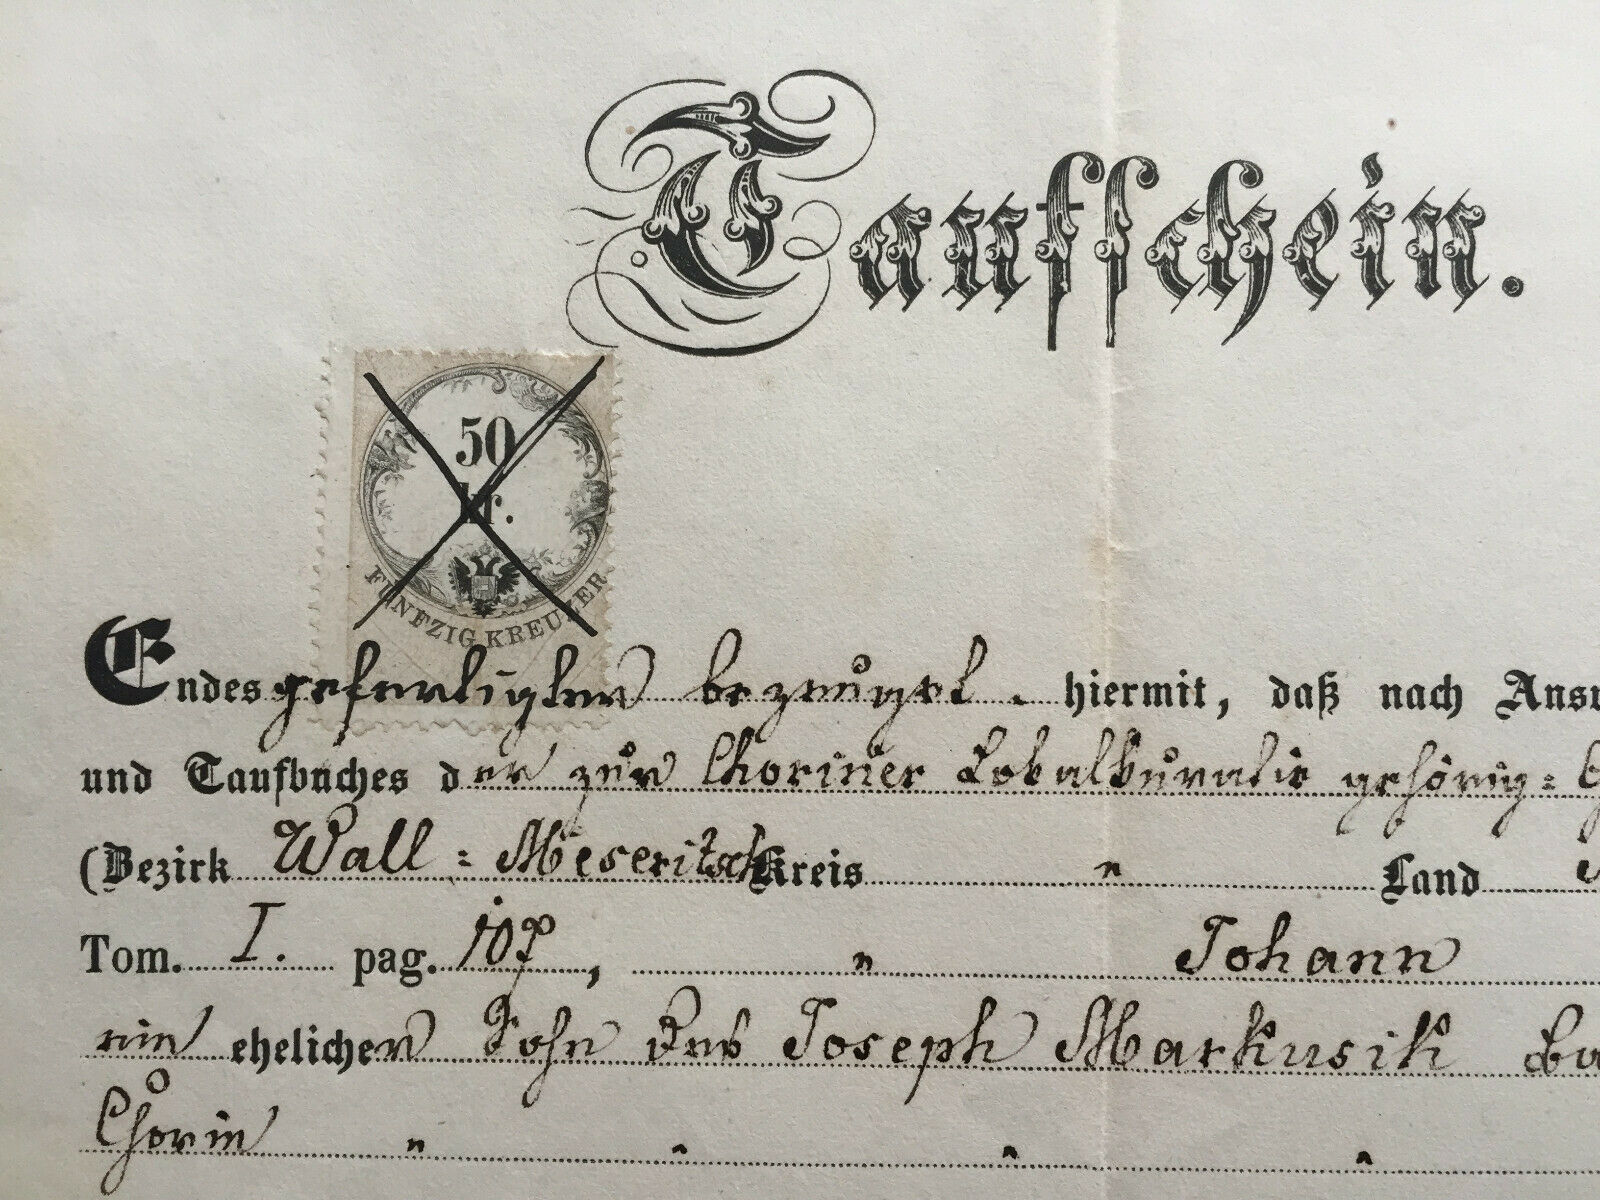 Taufschein.
50
kr.
FÜNFZIG KREUZER
Endesgefertigter bezeuget hiermit, daß nach
und Taufbuches der zur Choriner Lokalkuratie gehörig:
(Bezirk Wall: Meseritsch Kreis " Land
Tom. I. pag. 107, " Johann
ein ehelicher Sohn des Joseph Markusik
Chorin " " " "